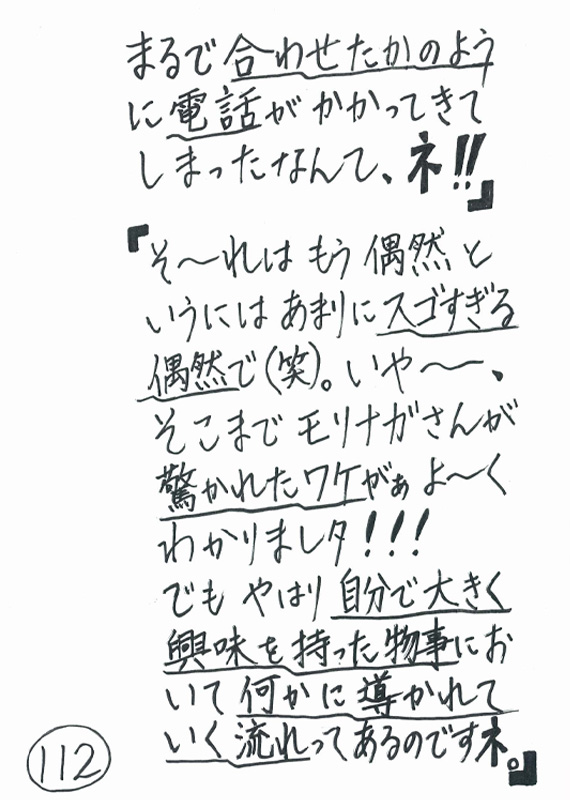 まるで合わせたかのよう
に電話がかかってきて
しまったなんて、ネ!!』
『そ〜れはもう偶然と
いうにはあまりにスゴすぎる
偶然で(笑)。いや〜、
そこまでモリナガさんが
驚かれたワケがぁよ〜く
わかりましタ!!!
でもやはり自分で大きく
興味を持った物事にお
いて何かに導かれて
いく流れってあるのですネ。』
112